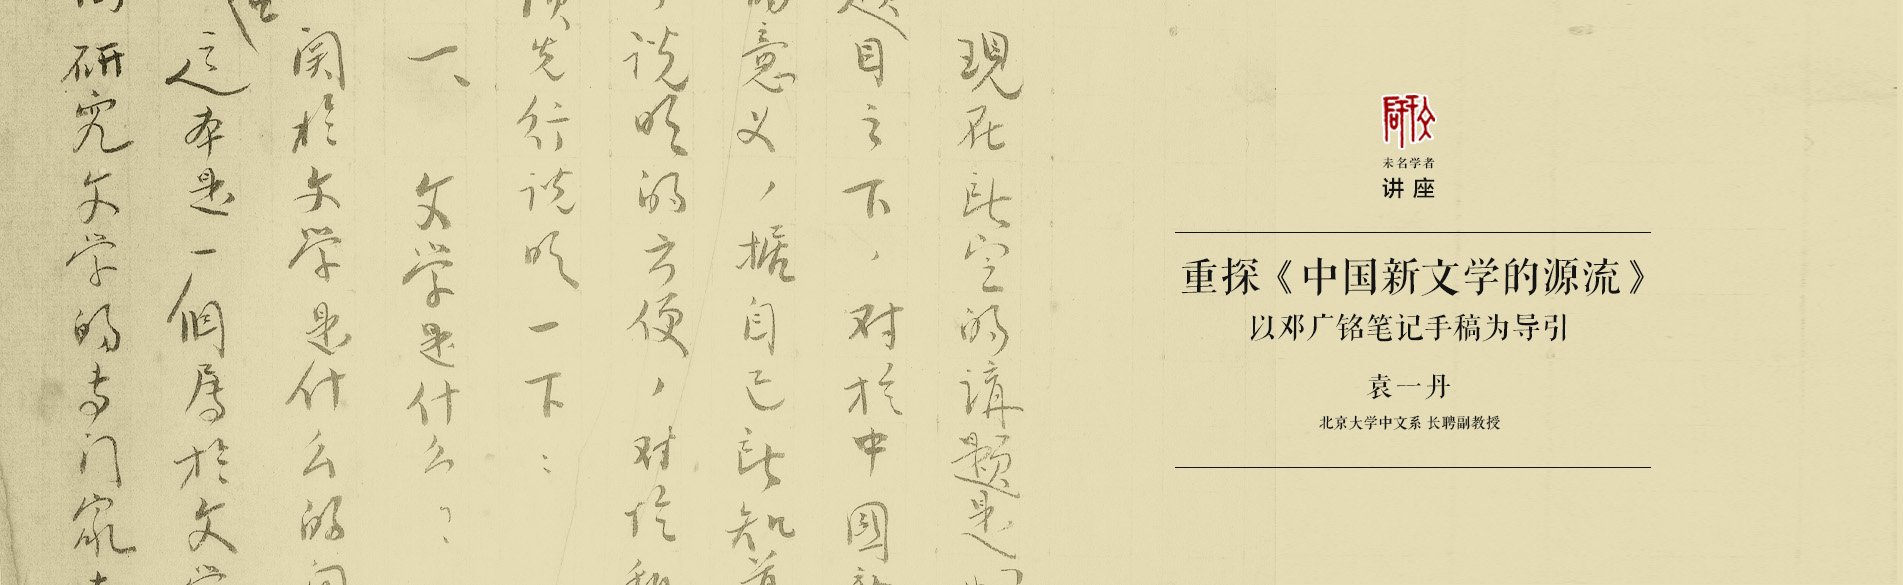 現在所定的講題是
题目之下，对於中國新
的意义，据自己所知道
说明的方便，对於
须先行说明一下：
一、文学是什么？
関於文学是什么的问
这本是一個属於文学
研究文学的专门家
未名学者
讲座
重探《中国新文学的源流》
以邓广铭笔记手稿为导引
袁一丹
北京大学中文系 长聘副教授